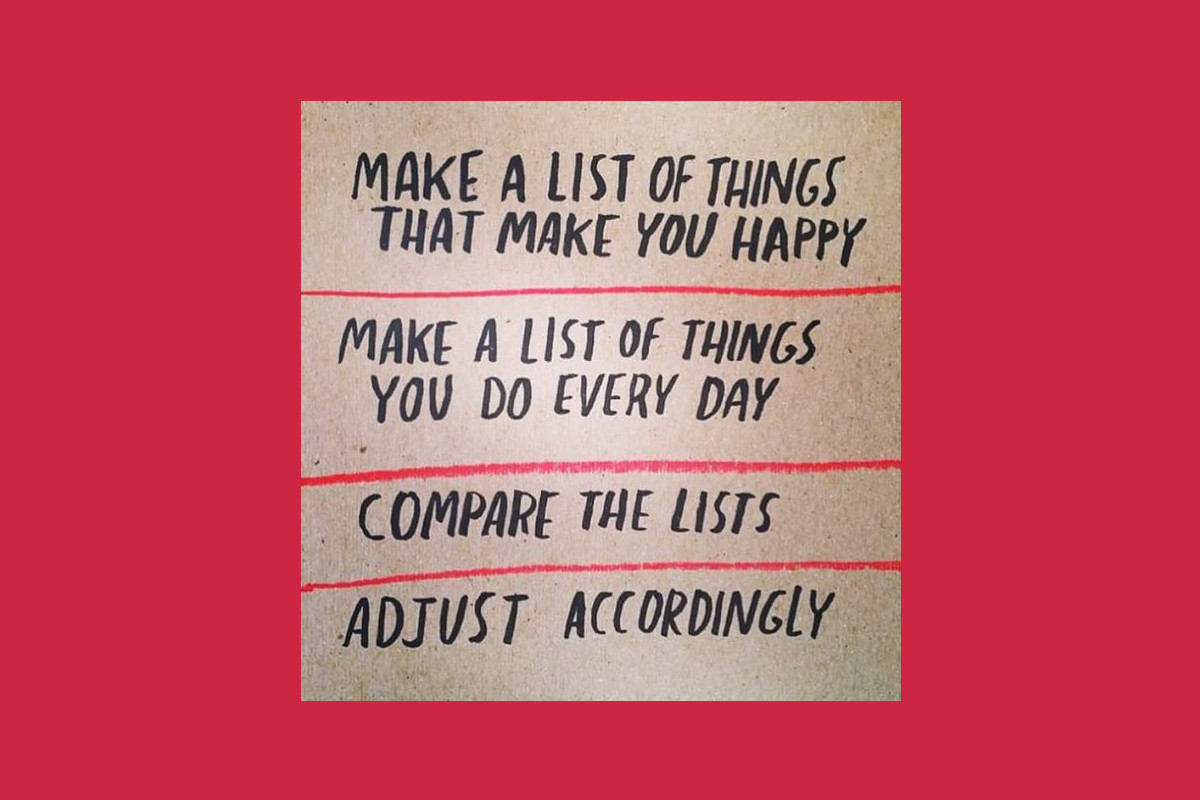 MAKE A LIST OF THINGS
THAT MAKE YOU HAPPY
MAKE A LIST OF THINGS
YOU DO EVERY DAY
COMPARE THE LISTS
ADJUST ACCORDINGLY